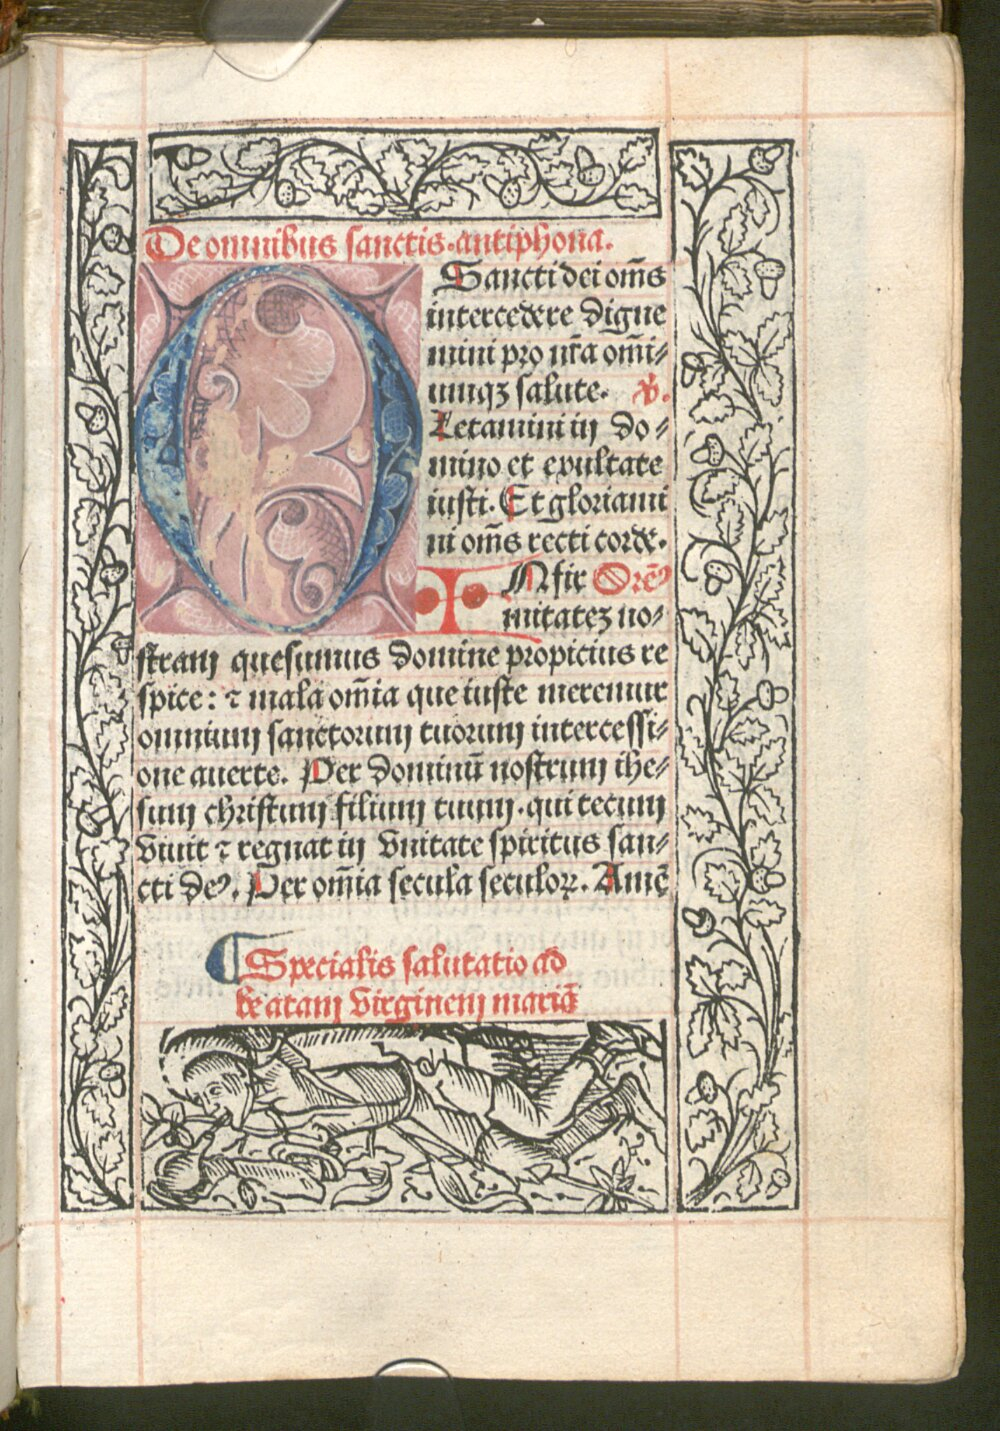 De omnibus sanctis. antiphona.
O Sancti dei om̄s
intercedere digne
mini pro nr̄a om̄i⸗
umqꝫ salute. ℣.
Letamini in do⸗
mino et exultate
iusti. Et gloriami
ni om̄s recti corde.
Infir Orem̄9
mitateꝫ no⸗
stram quesumus domine propicius re
spice: ⁊ mala om̄ia que iuste meremur
omnium sanctorum tuorum intercessi⸗
one auerte. Per dominū nostrum ihe⸗
sum christum filium tuum. qui tecum
viuit ⁊ regnat in vnitate spiritus san⸗
cti de9. Per om̄ia secula seculoꝝ. Amē
¶ Specialis salutatio ad
beatam virginem mariā